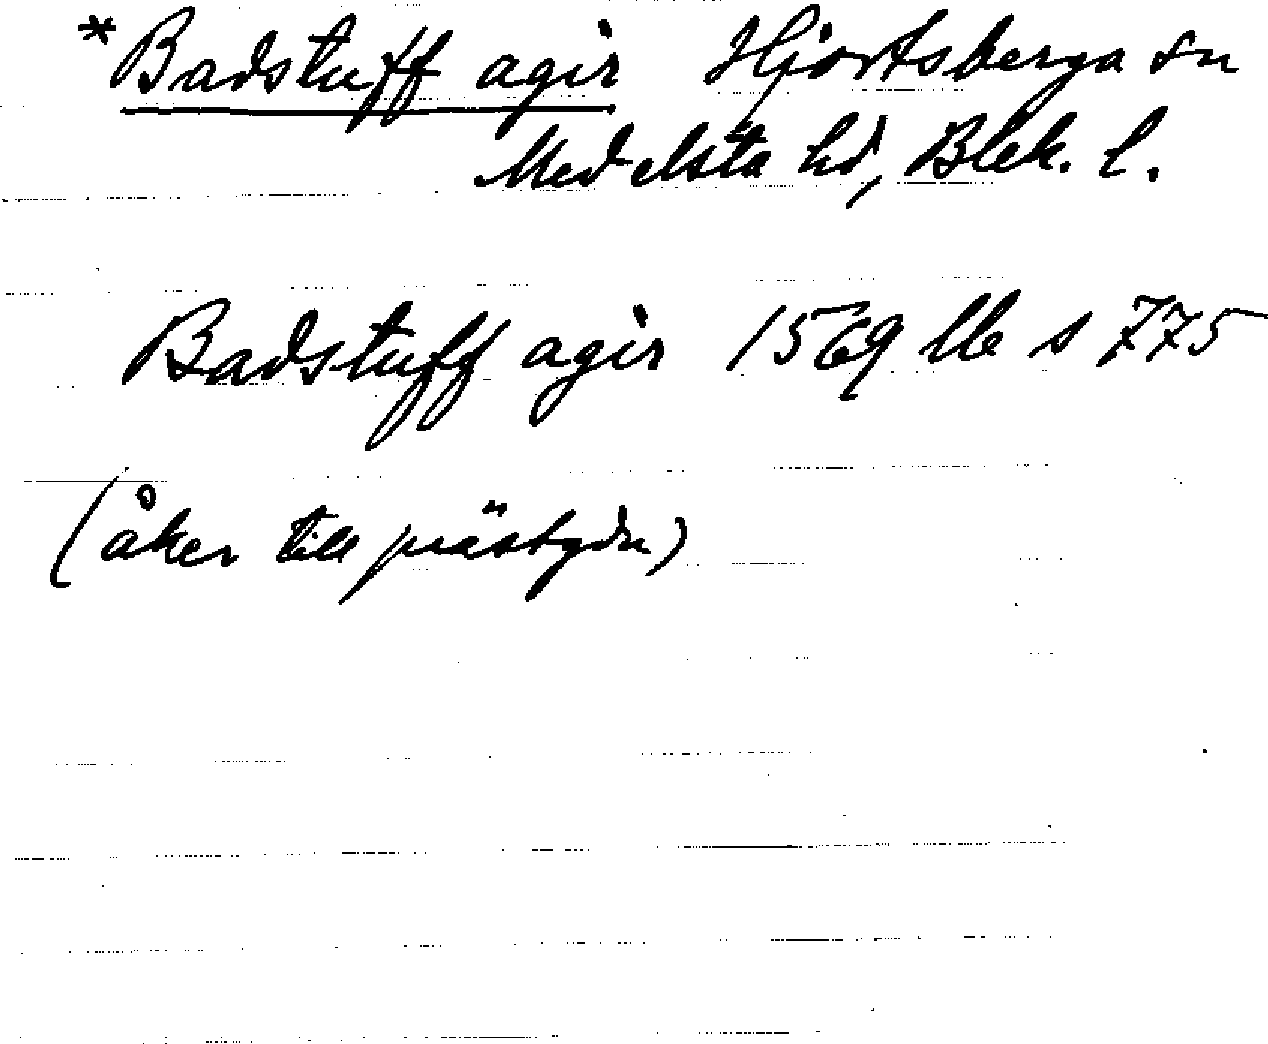 *Badstuff agir Hjortsberga sn
Medelsta hd, Blek. l.
Badstuff agir 1569 llb s 775
(åker till prästgdn)